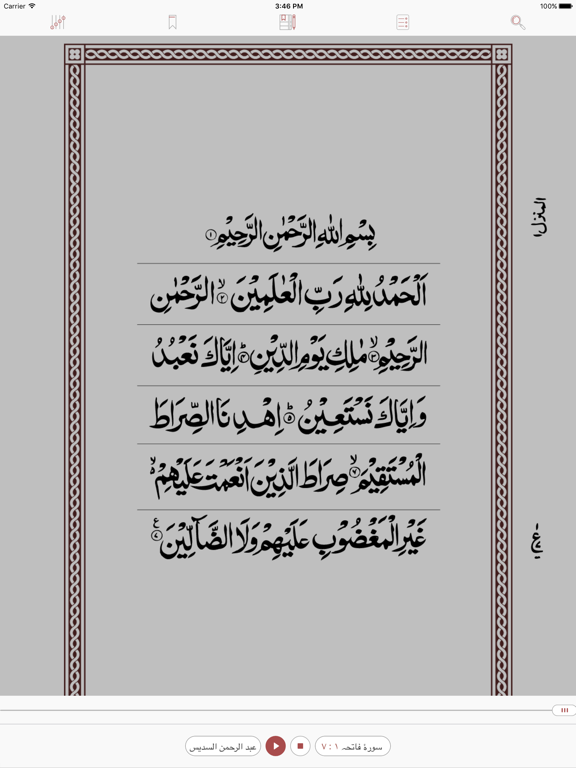 Carrier 3:46 PM 100%
بِسْمِ اللهِ الرَّحْمٰنِ الرَّحِيْمِ ۝١
اَلْحَمْدُ لِلّٰهِ رَبِّ الْعٰلَمِيْنَ ۙ۝٢ الرَّحْمٰنِ
الرَّحِيْمِ ۙ۝٣ مٰلِكِ يَوْمِ الدِّيْنِ ؕ۝ اِيَّاكَ نَعْبُدُ
وَاِيَّاكَ نَسْتَعِيْنُ ؕ۝٥ اِهْدِنَا الصِّرَاطَ
الْمُسْتَقِيْمَ ۙ۝ صِرَاطَ الَّذِيْنَ اَنْعَمْتَ عَلَيْهِمْ ۙ
غَيْرِ الْمَغْضُوْبِ عَلَيْهِمْ وَلَا الضَّآلِّيْنَ ۝٧
المنزل١
ع
عبد الرحمن السديس
سورة فاتحہ ١ : ٧